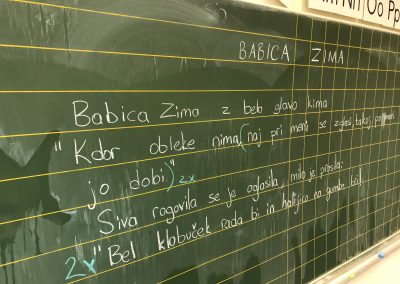 Nn Oo Pp
BABICA ZIMA
Babica Zima z belo glavo kima
"Kdor obleke nima, (naj pri meni se zglasi, takoj
jo dobi.)" 2x
Siva rogovila se je oglasila, milo je prosila:
2x "Bel klobuček rada bi in haljico na gumbe tri!